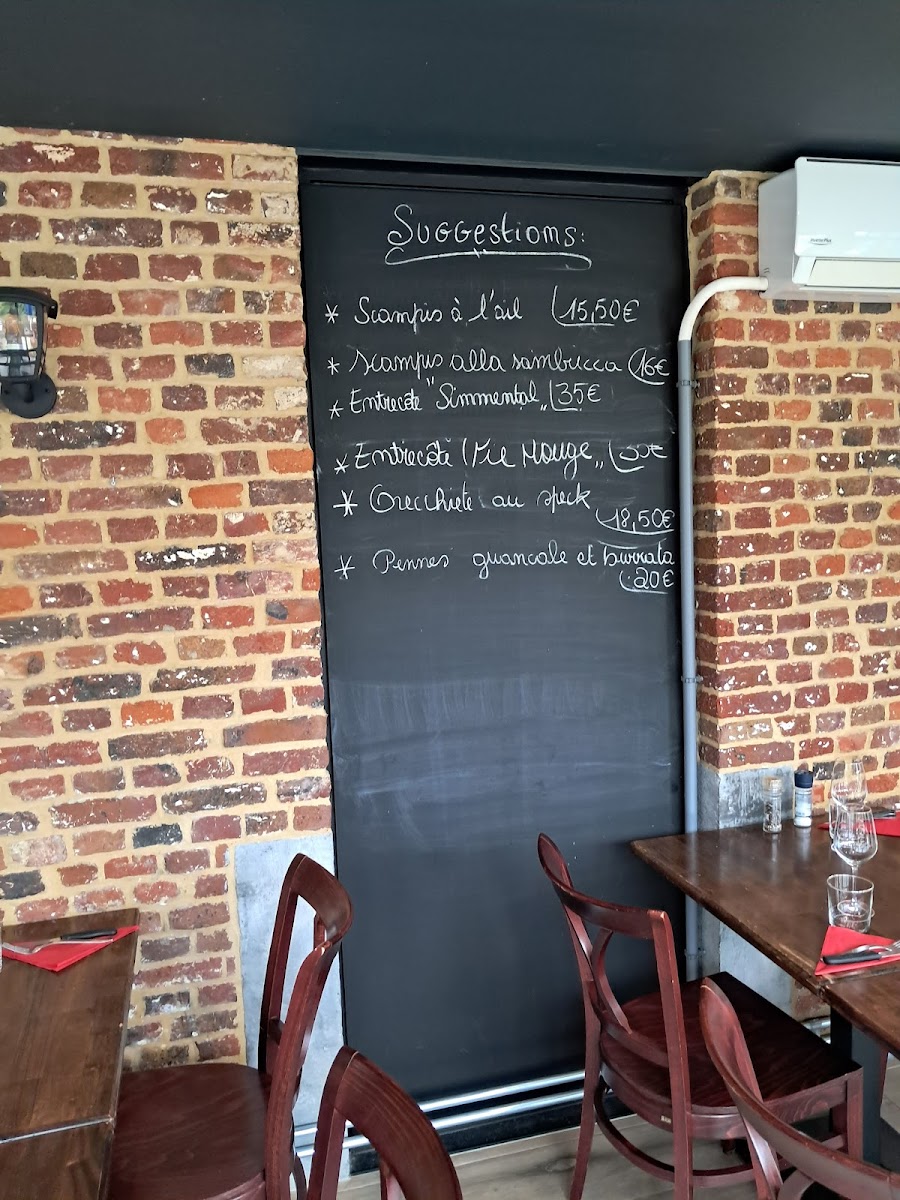 Suggestions:
* Scampis à l'ail 15,50€
* Scampis alla sambucca 16€
* Entrecôte "Simmental" 35€
* Entrecôte
* Orecchiete au speck
18,50€
* Pennes guanciale et burrata
20€